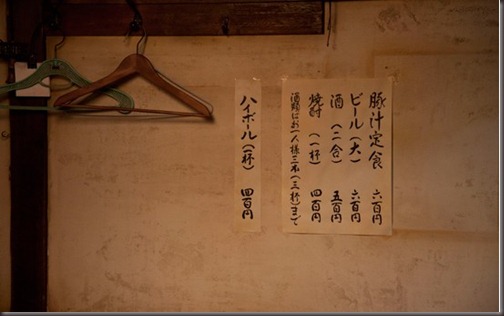 豚汁定食 六百円
ビール(大) 六百円
酒(二合) 五百円
焼酎(一杯) 四百円
酒類はお一人様三本(三杯)まで
ハイボール(一杯) 四百円